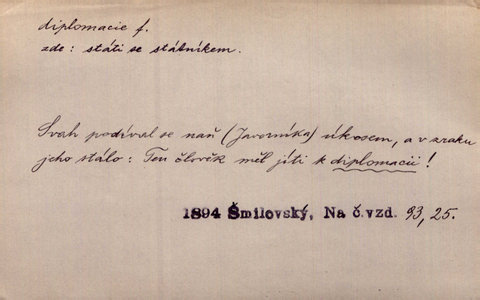 diplomacie f.
zde: státi se státníkem.
Svah podíval se naň (Javorníka) úkosem, a v zraku
jeho stálo: Ten člověk měl jíti k diplomacii!
1894 Šmilovský, Na č.vzd. 93, 25.